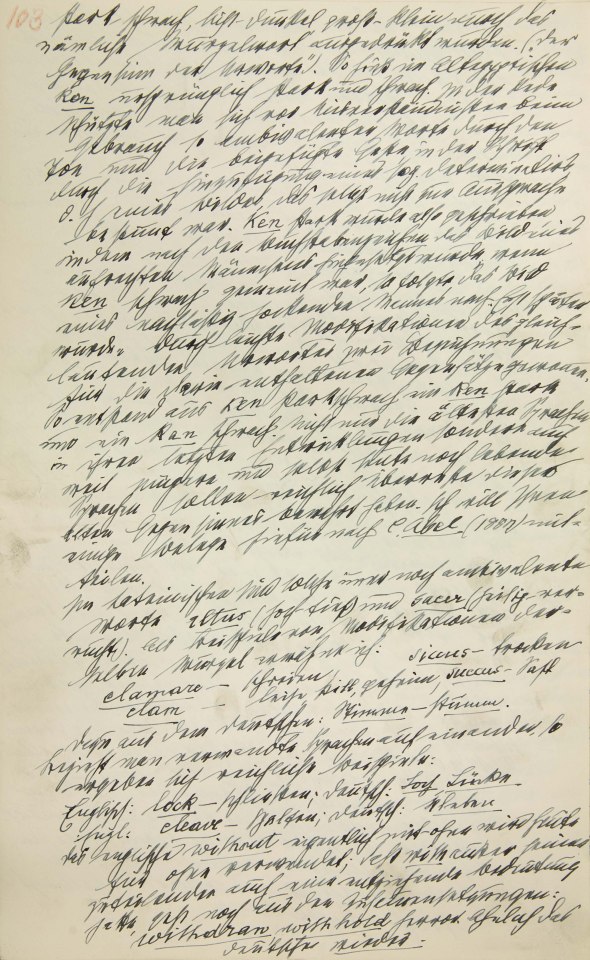 stark schwach, licht dunkel groß - klein durch das
nämliche Wurzelwort ausgedrückt wurden. („der
Gegensinn der Urworte“). So hieß im Altegyptischen
Ken ursprünglich stark und schwach. In der Rede
schützte man sich vor Misverständnissen beim
Gebrauch so ambivalenter Worte durch den
Ton und die beigefügte Geste in der Schrift
durch die Hinzufügung eines sog. Determinativs
d. h. eines Bildes das selbst nicht zur Aussprache
bestimmt war. Ken stark wurde also geschrieben
indem nach den Buchstabenzeichen das Bild eines
aufrechten Männchens hingesetzt wurde, wenn
Ken schwach gemeint war, so folgte das Bild
eines nachlässig hockenden Mannes nach. Erst später
wurden durch leichte Modifikationen des gleich-
lautenden Urwortes zwei Bezeichnungen
für die darin enthaltenen Gegensätze gewonnen.
So entstand aus Ken starkschwach ein Ken stark
und ein Kan schwach. Nicht nur die ältesten Sprachen
in ihren letzten Entwicklungen sondern auch
weit jüngere und selbst heute noch lebende
Sprachen sollen reichlich Überreste dieses
alten Gegensinnes bewahrt haben. Ich will Ihnen
einige Belege hiefür nach C. Abel (1884) mit-
teilen.
Im Lateinischen sind solche immer noch ambivalente
Worte altus (hoch tief) und sacer (heilig - ver-
rucht). Als Beispiele von Modifikationen der-
selben Wurzel erwähne ich: siccus - trocken
clamare - schreien,
clam - leise still, geheim, succus - Saft
Dazu aus dem Deutschen: Stimme - stumm.
Bezieht man verwandte Sprachen auf einander so
ergeben sich reichliche Beispiele:
Englisch: lock - schließen; deutsch: Loch Lücke
Engl: cleave - spalten; deutsch: kleben
Das englische without eigentlich mit-ohne wird heute
für ohne verwendet; daß with außer seiner
zuteilenden auch eine entziehende Bedeutung
hatte, geht noch aus den Zusammensetzungen:
withdraw withhold hervor. Ähnlich das
deutsche wieder.
103